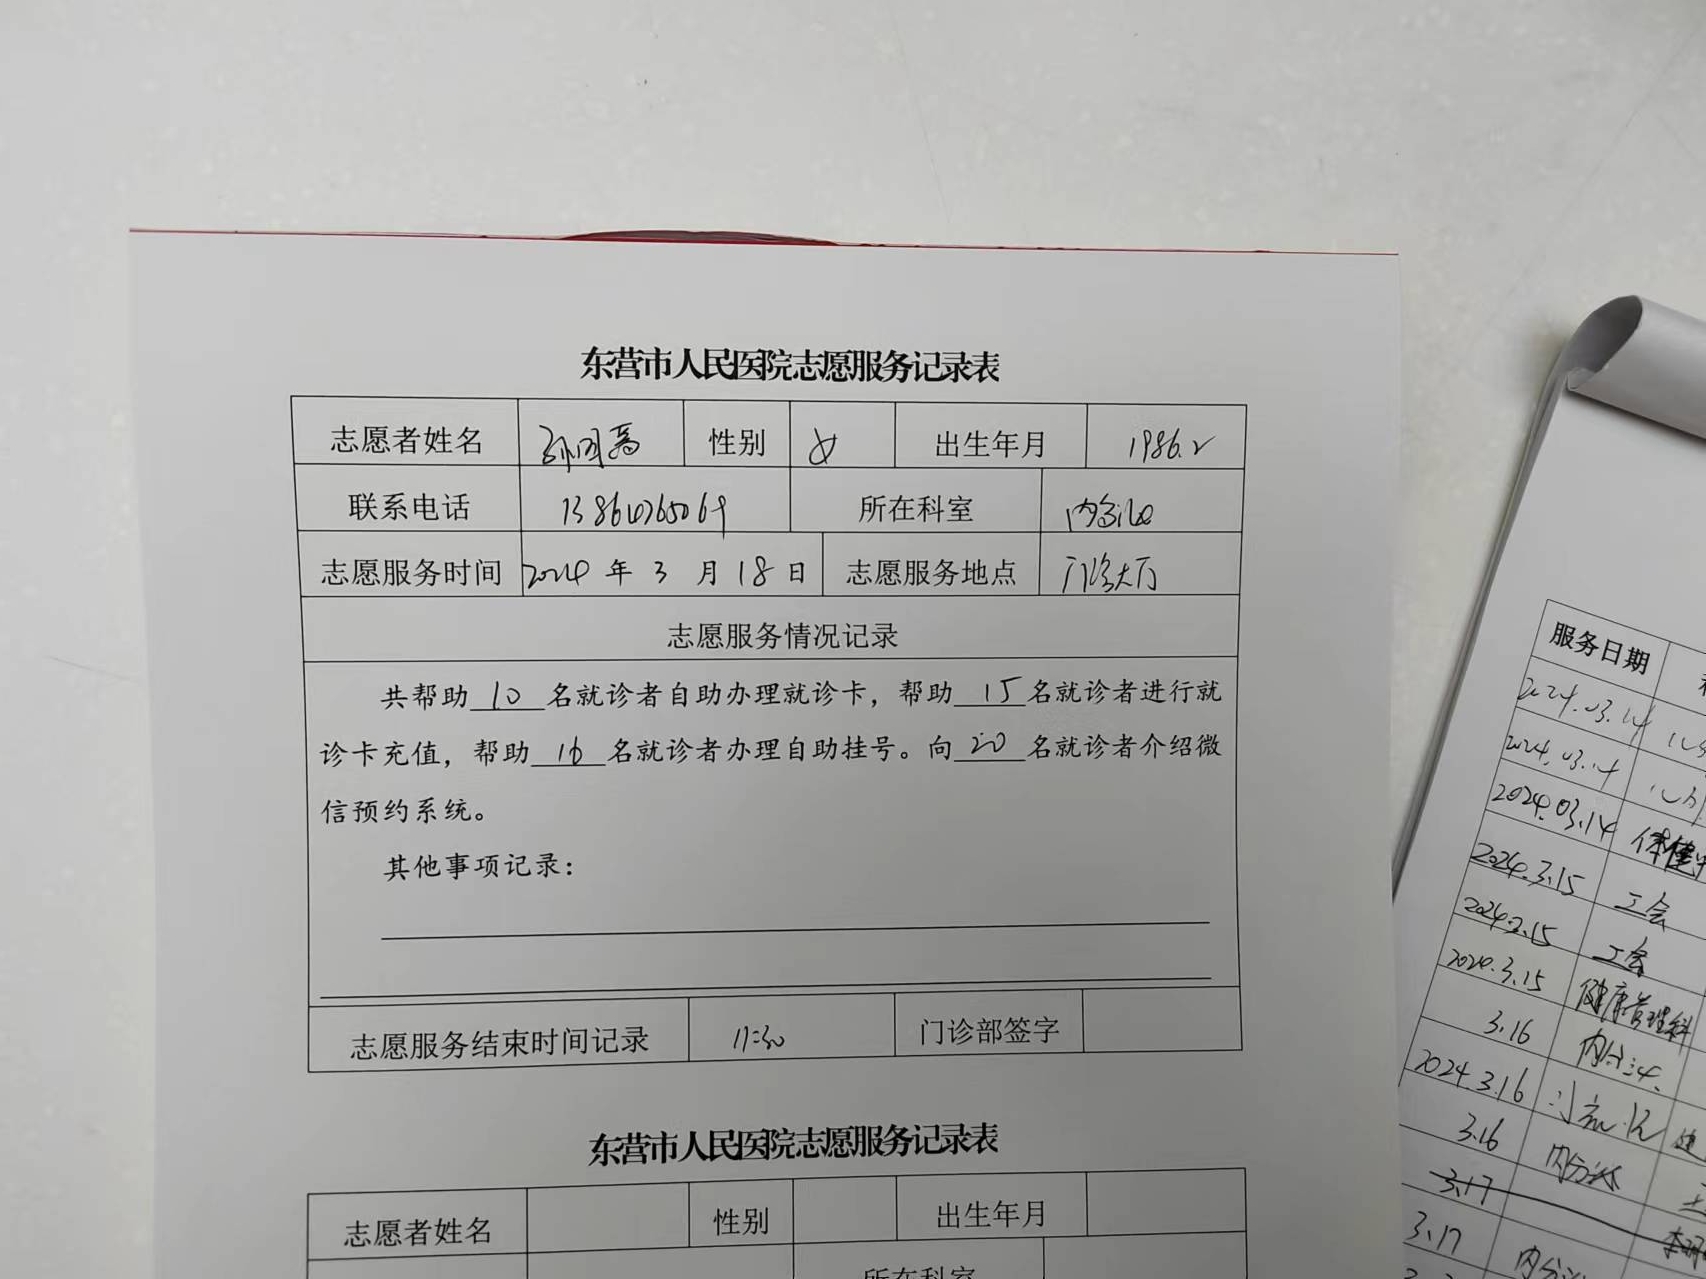 东营市人民医院志愿服务记录表
志愿者姓名 性别 女 出生年月 1986.2
联系电话 所在科室
志愿服务时间 2024 年 3 月 18 日 志愿服务地点 门诊大厅
志愿服务情况记录
共帮助 10 名就诊者自助办理就诊卡，帮助 15 名就诊者进行就
诊卡充值，帮助 16 名就诊者办理自助挂号。向 20 名就诊者介绍微
信预约系统。
其他事项记录：
志愿服务结束时间记录 11:30 门诊部签字
东营市人民医院志愿服务记录表
志愿者姓名 性别 出生年月
所在科室
服务日期
2024.03.14
2024.03.14
2024.03.14 体健
2024.3.15 工会
2024.3.15 工会
2024.3.15 健康管理科
3.16 内分泌
2024.3.16
3.16 内分泌
3.17
3.17 内分泌